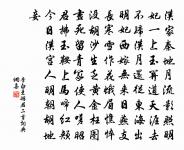 漢家秦地月流影照明
妃一上玉關道天涯去
不歸漢月還從東海出
明妃西嫁無來日燕支
長寒雪作花蛾眉憔悴
沒胡沙生乏黃金枉圖
畫死留青塚使人嗟昭
君拂玉鞍上馬啼紅頰
今日漢宮人明朝胡地
妾
李白王昭君二首詞典
網書